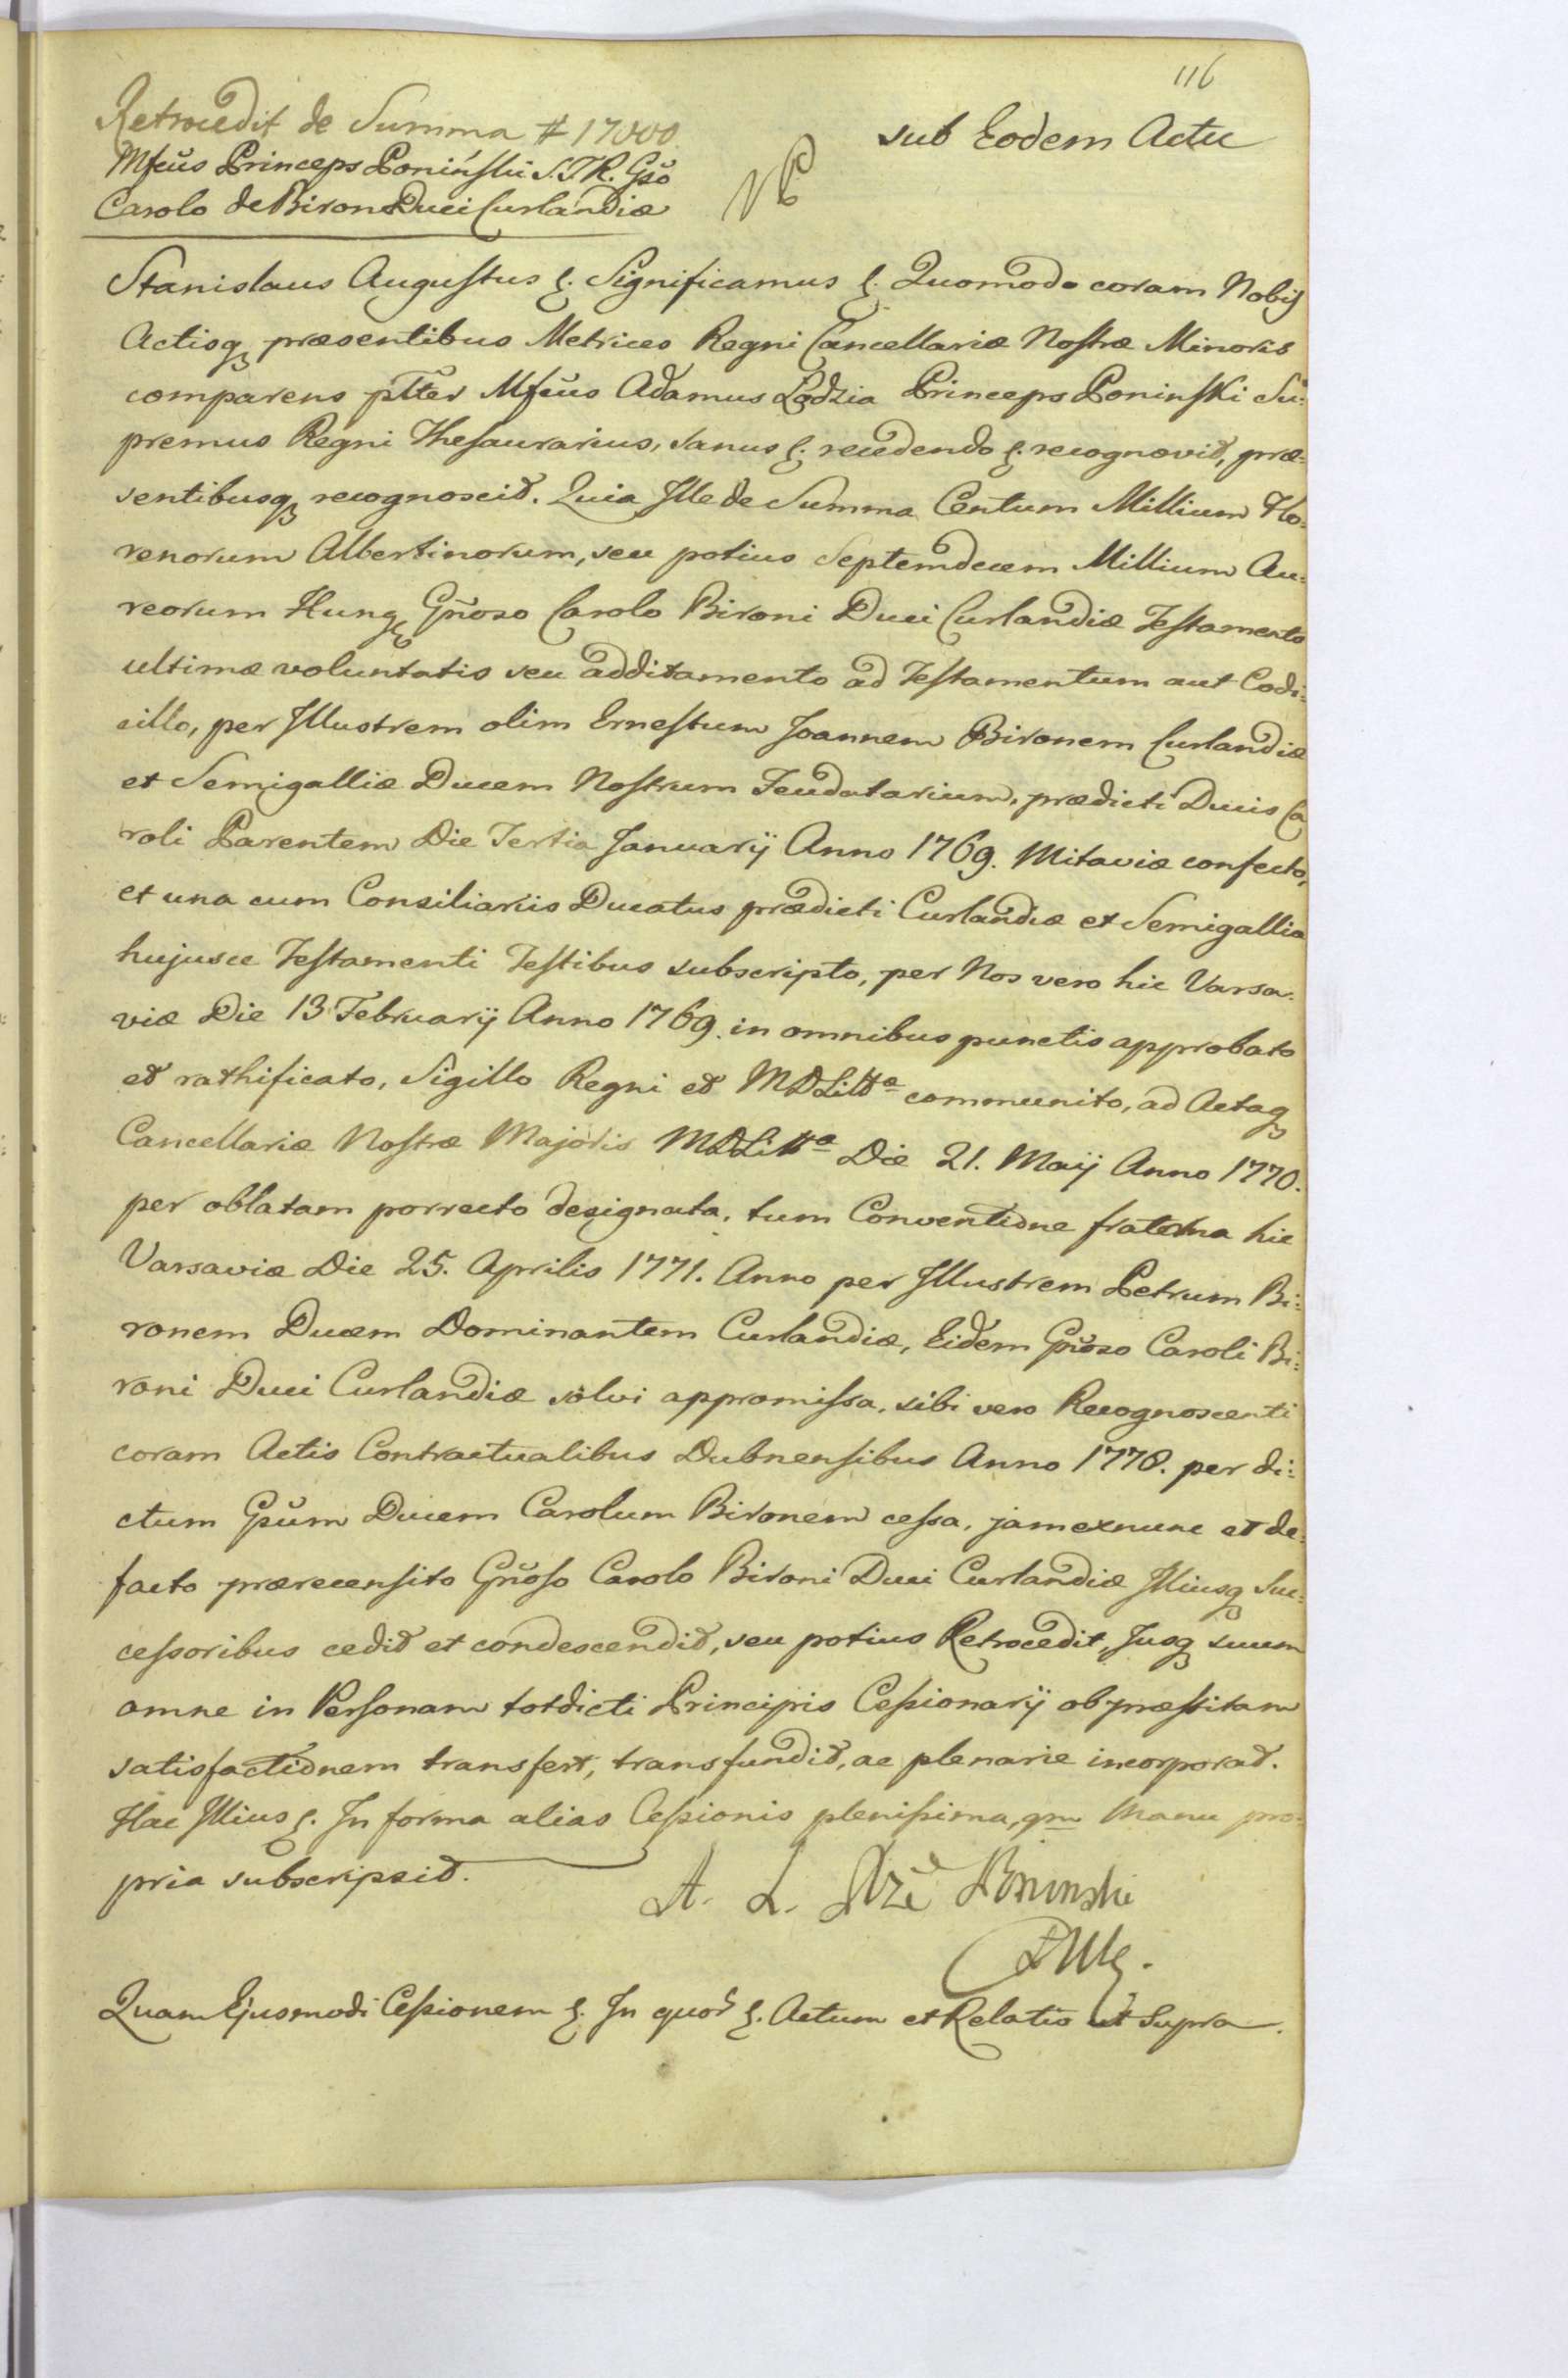 116
Retrocedit de Summa # 17000
sub Eodem Actu
Mfcus Princeps Poniński S.T.R. Gso
Carolo de Biron Duci Curlandiæ
Stanislaus Augustus &. Significamus &. Quomodo coram Nobis
Actisq præsentibus Metrices Regni Cancellariæ Nostræ Minoris
comparens pltter Mfcus Adamus Lodzia Princeps Poninski Su:
premus Regni Thesaurarius, sanus &. recedendo &. recognovit, præ:
sentibusq recognoscit. Quia Ille de Summa Centum Millium Flo:
renorum Albertinorum, seu potius Septemdecem Millium Au:
reorum Hung Gnoso Carolo Bironi Duci Curlandiæ Testamento
ultimæ voluntatis seu additamento ad Testamentum aut Codi:
cillo, per Illustrem olim Ernestum Joannem Bironem Curlandiæ
et Semigalliæ Ducem Nostrum Feudatarium, prædicti Ducis Ca
roli Parentem Die Tertia Januarij Anno 1769. Mitaviæ confecto,
et una cum Consiliariis Ducatus prædicti Curlandiæ et Semigallia
hujusce Testamenti Testibus subscripto, per Nos vero hic Varsa:
viæ Die 13 Februarij Anno 1769. in omnibus punctis approbato
et rathificato, Sigillo Regni et MDLitta communito, ad Actaq
Cancellariæ Nostræ Majoris MDLitta Die 21. Maij Anno 1770.
per oblatam porrecto designata, tum Conventione fraterna hic
Varsaviæ Die 25. Aprilis 1771. Anno per Illustrem Petrum Bi:
ronem Ducem Dominantem Curlandiæ, Eidem Gnoso Caroli Bi:
roni Duci Curlandiæ solvi appromissa, sibi vero Recognoscenti
coram Actis Contractualibus Dubnensibus Anno 1778. per di:
ctum Gsum Ducem Carolum Bironem cessa, jam exnunc et de:
facto præcensito Gnoso Carolo Bironi Duci Curlandiæ Illiusq Suc:
cessoribus cedit et condescendit, seu potius Retrocedit, Jusq suum
omne in Personam totdicti Principis Cessionarij ob præstitam
satisfactionem transfert, transfundit, ac plenarie incorporat.
Hac Illius &. In forma alias Cessionis plenissima, qm Manu pro:
pria subscripsit.
A. L. Poninski
Quam Ejusmodi Cessionem &. In quor &. Actum et Relatio ut Supra.